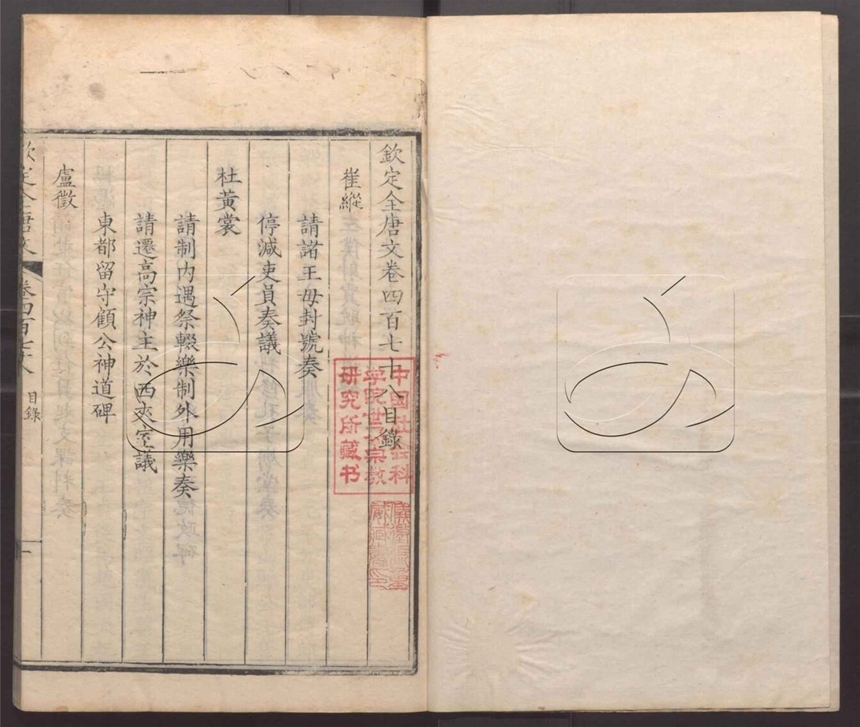 欽定全唐文卷四百七十八目錄
崔縱
請諸王母封號奏
停減吏員奏議
杜黃裳
請制內遇祭輟樂制外用樂奏
請遷高宗神主於西夾室議
東都留守顧公神道碑
盧徵
欽定全唐文
卷四百七十八 目錄
一
中国社会科
学院世界宗教
研究所藏书